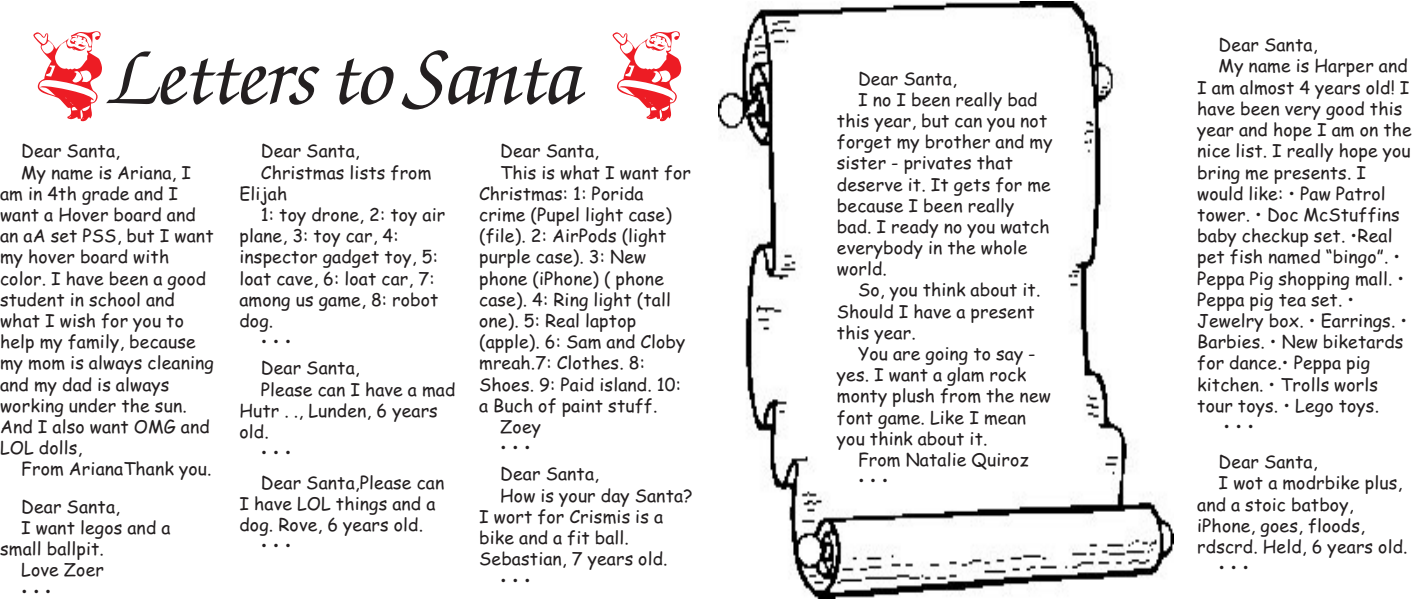 Letters to Santa
Dear Santa,
My name is Ariana, I
am in 4th grade and I
want a Hover board and
an aA set PSS, but I want
my hover board with
color. I have been a good
student in school and
what I wish for you to
help my family, because
my mom is always cleaning
and my dad is always
working under the sun.
And I also want OMG and
LOL dolls,
From ArianaThank you.
Dear Santa,
I want legos and a
small ballpit.
Love Zoer
• • •
Dear Santa,
Christmas lists from
Elijah
1: toy drone, 2: toy air
plane, 3: toy car, 4:
inspector gadget toy, 5:
loat cave, 6: loat car, 7:
among us game, 8: robot
dog.
• • •
Dear Santa,
Please can I have a mad
Hutr . ., Lunden, 6 years
old.
• • •
Dear Santa,Please can
I have LOL things and a
dog. Rove, 6 years old.
• • •
Dear Santa,
This is what I want for
Christmas: 1: Porida
crime (Pupel light case)
(file). 2: AirPods (light
purple case). 3: New
phone (iPhone) ( phone
case). 4: Ring light (tall
one). 5: Real laptop
(apple). 6: Sam and Cloby
mreah.7: Clothes. 8:
Shoes. 9: Paid island. 10:
a Buch of paint stuff.
Zoey
• • •
Dear Santa,
How is your day Santa?
I wort for Crismis is a
bike and a fit ball.
Sebastian, 7 years old.
• • •
Dear Santa,
I no I been really bad
this year, but can you not
forget my brother and my
sister - privates that
deserve it. It gets for me
because I been really
bad. I ready no you watch
everybody in the whole
world.
So, you think about it.
Should I have a present
this year.
You are going to say -
yes. I want a glam rock
monty plush from the new
font game. Like I mean
you think about it.
From Natalie Quiroz
• • •
Dear Santa,
My name is Harper and
I am almost 4 years old! I
have been very good this
year and hope I am on the
nice list. I really hope you
bring me presents. I
would like: • Paw Patrol
tower. • Doc McStuffins
baby checkup set. •Real
pet fish named “bingo”. •
Peppa Pig shopping mall. •
Peppa pig tea set. •
Jewelry box. • Earrings. •
Barbies. • New biketards
for dance.• Peppa pig
kitchen. • Trolls worls
tour toys. • Lego toys.
• • •
Dear Santa,
I wot a modrbike plus,
and a stoic batboy,
iPhone, goes, floods,
rdscrd. Held, 6 years old.
• • •